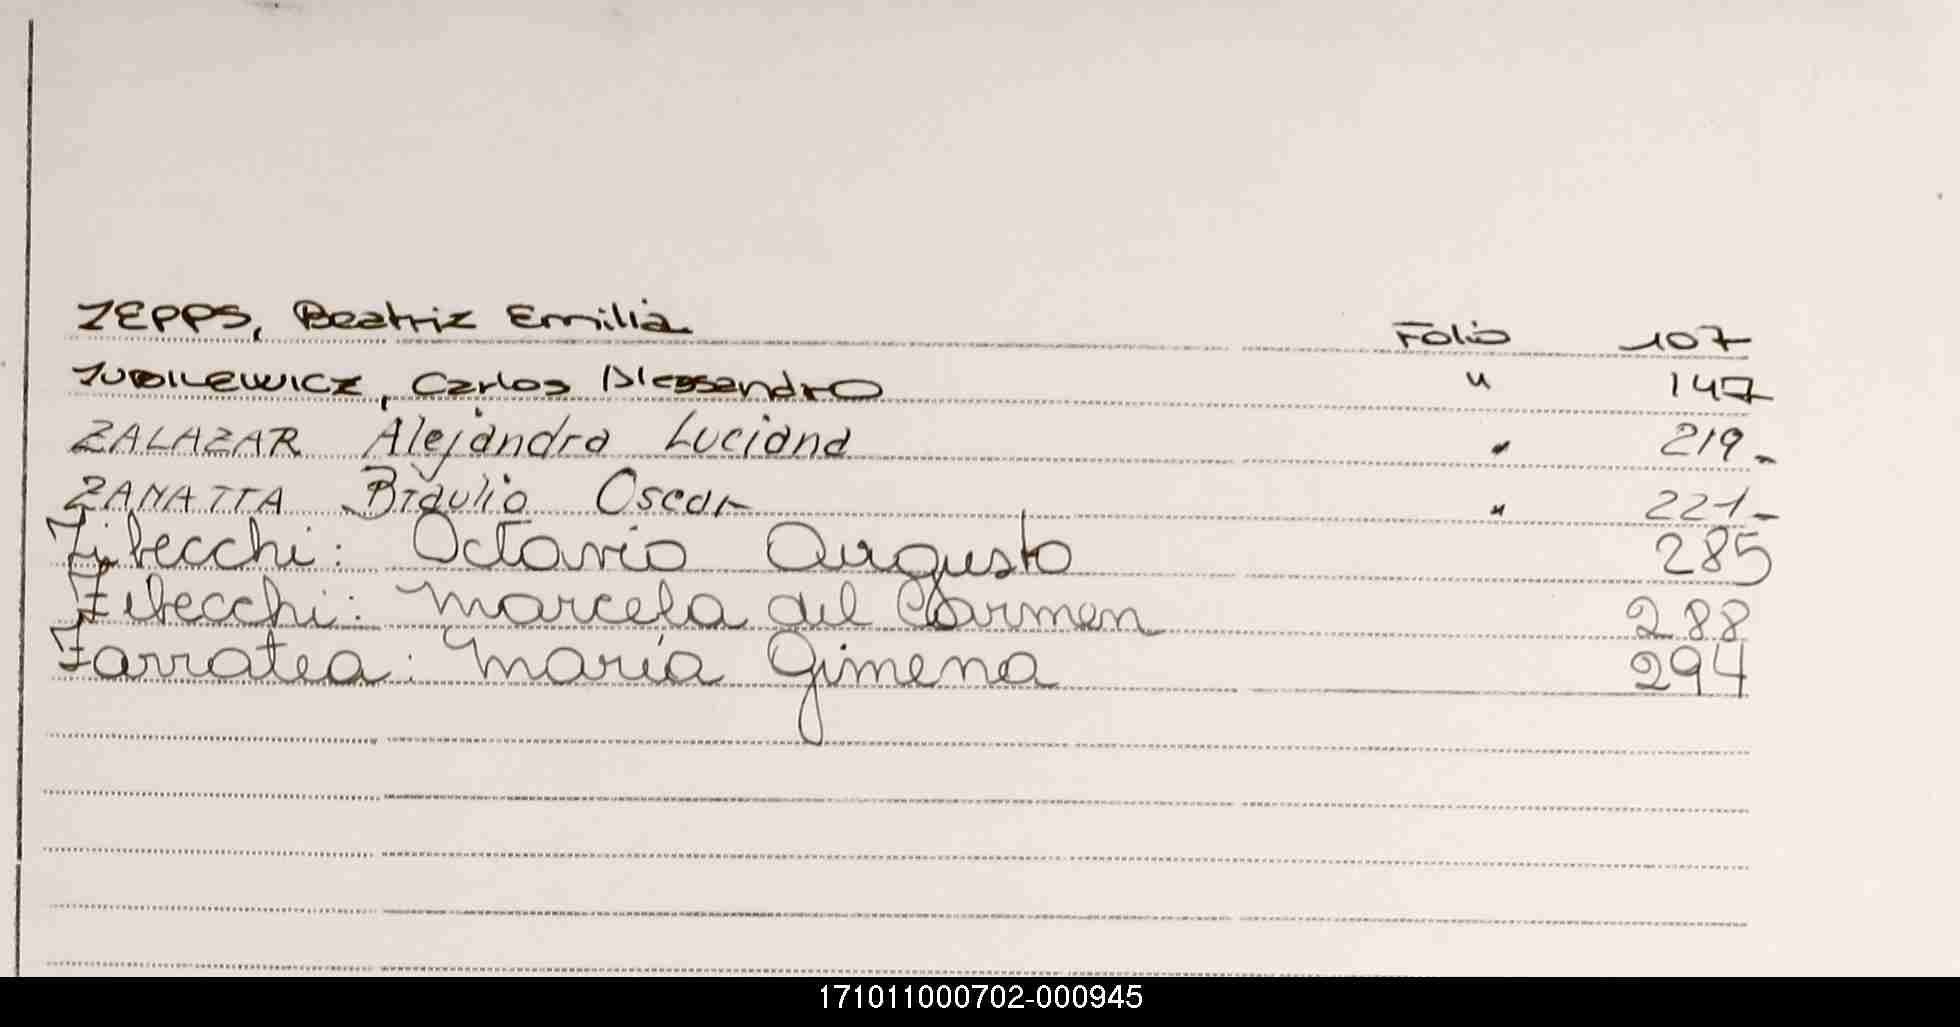 ZEPPS, Beatriz Emilia Folio 107
ZUBILEWICZ, Carlos Alessandro " 147
ZALAZAR Alejandra Luciana " 219-
ZANATTA Braulio Oscar " 221-
Zibecchi: Octavio Augusto 285
Zibecchi: Marcela del Carmen 288
Zarratea: María Gimena 294
171011000702-000945